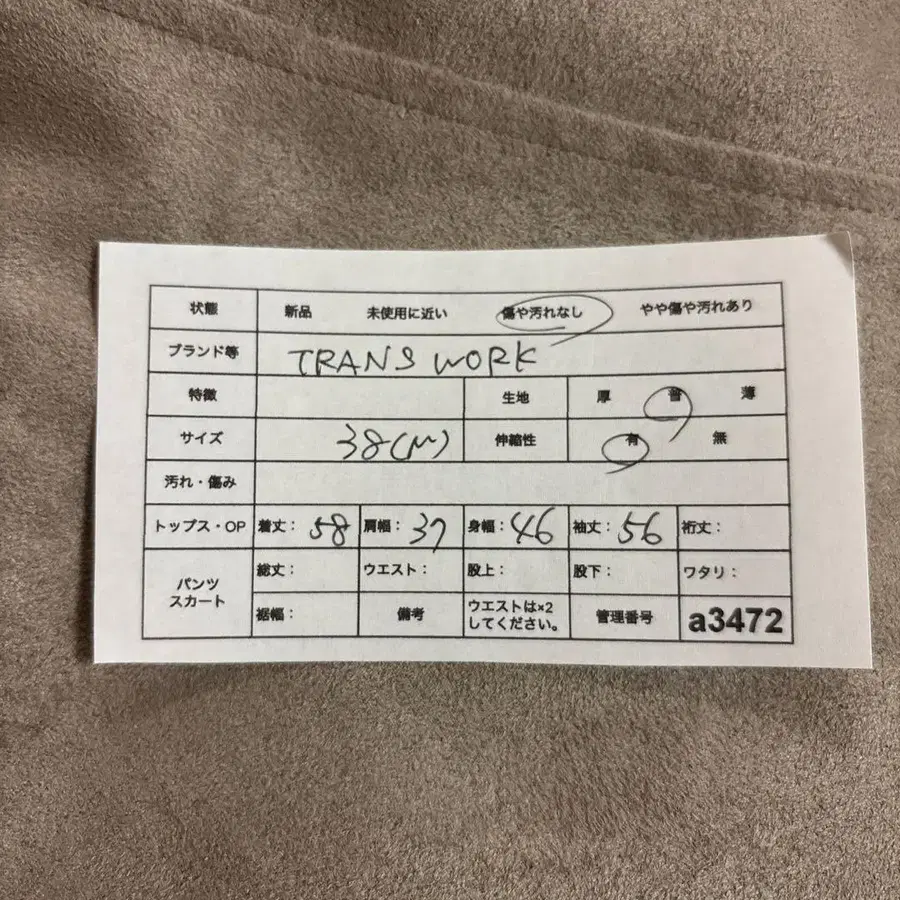 状態 新品 未使用に近い 傷や汚れなし やや傷や汚れあり
ブランド等 TRANS WORK
特徴 生地 厚 普 薄
サイズ 38(M) 伸縮性 有 無
汚れ・傷み
トップス・OP 着丈: 58 肩幅: 37 身幅: 46 袖丈: 56 裄丈:
パンツ
スカート
総丈: ウエスト: 股上: 股下: ワタリ:
裾幅: 備考 ウエストは×2
してください。 管理番号 a3472